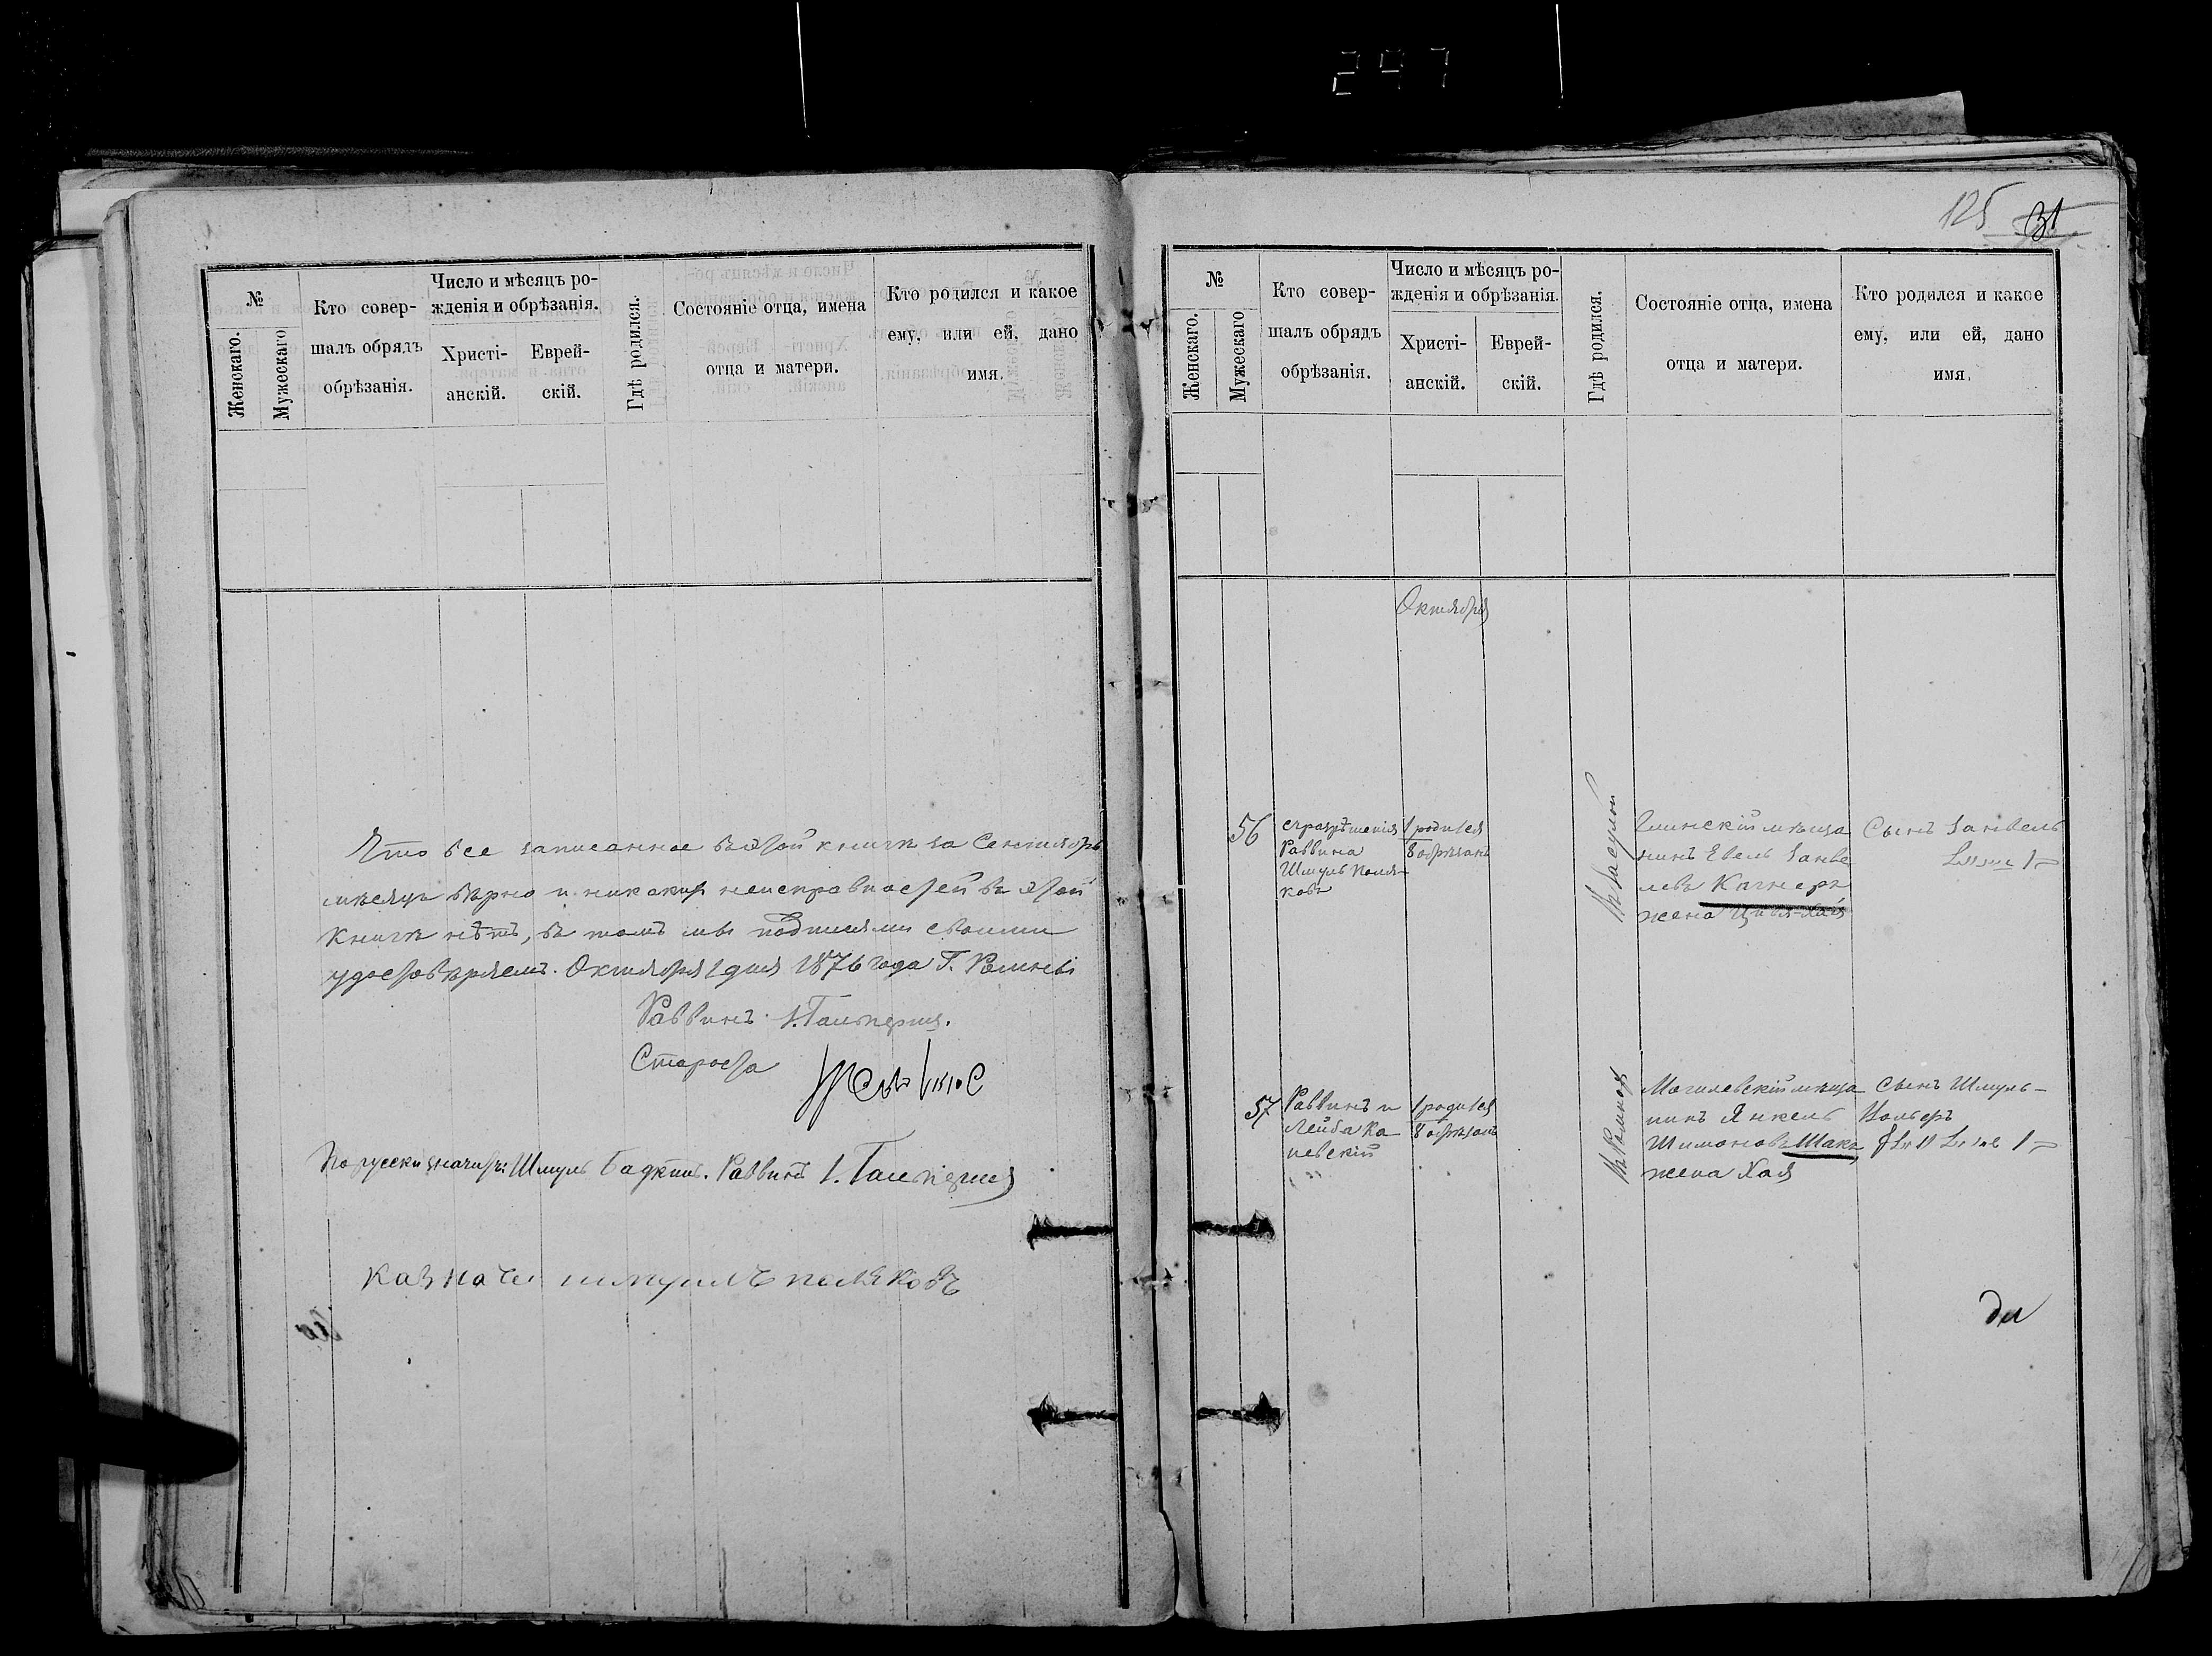 297
№
Женскаго.
Мужескаго
Кто совер-
шалъ обрядъ
обрѣзанія.
Число и мѣсяцъ ро-
жденія и обрѣзанія.
Христі-
анскій.
Еврей-
скій.
Гдѣ родился.
Состояніе отца, имена
отца и матери.
Кто родился и какое
ему, или ей, дано
имя.
Что все записанное въ этой книгѣ за Сентябрь
мѣсяцъ вѣрно и никакихъ неисправностей въ этой
книгѣ нѣтъ, въ томъ мы подписями своими
удостовѣряемъ. Октября 1 дня 1876 года Г. Роменъ
Раввинъ І. Гальперинъ.
Староста
По русски значитъ: Шмуль. Раввинъ І. Гальперинъ
казначеи шмуилъ поляковъ
125 31
№
Женскаго.
Мужескаго
Кто совер-
шалъ обрядъ
обрѣзанія.
Число и мѣсяцъ ро-
жденія и обрѣзанія.
Христі-
анскій.
Еврей-
скій.
Гдѣ родился.
Состояніе отца, имена
отца и матери.
Кто родился и какое
ему, или ей, дано
имя.
Октября
56
с разрѣшенія
Раввина
Шмуль Поля-
ковъ
1 родился
8 обрѣзанъ
Глинскій мѣща
нинъ Евель Занве
левъ
жена Цивья-Хая
Сынъ Занвель
57
Раввинъ и
Лейба Ка
невскій
1 родился
8 обрѣзанъ
въ Ромнахъ
Могилевскій мѣща
нинъ Янкель
Шимоновъ Шакъ
жена Хая
Сынъ Шмуль-